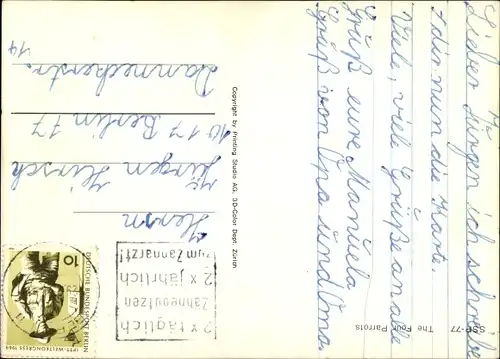 Lieber Jürgen ich schreibe
dir nun die Karte.
Viele, viele Grüße an alle
Grüß eure Manuela
Gruß von Opa und Oma
SSP-77 The Four Parrots
Copyright by Printing Studio AG, 3D-Color Dept. Zürich
2 x täglich
Zähneputzen
2 x jährlich
zum Zahnarzt!
10
DEUTSCHE BUNDESPOST BERLIN
IPTT-WELTKONGRESS 1969
Herrn
Jürgen Hirsch
1000 Berlin 17
Danneckerstr.
14